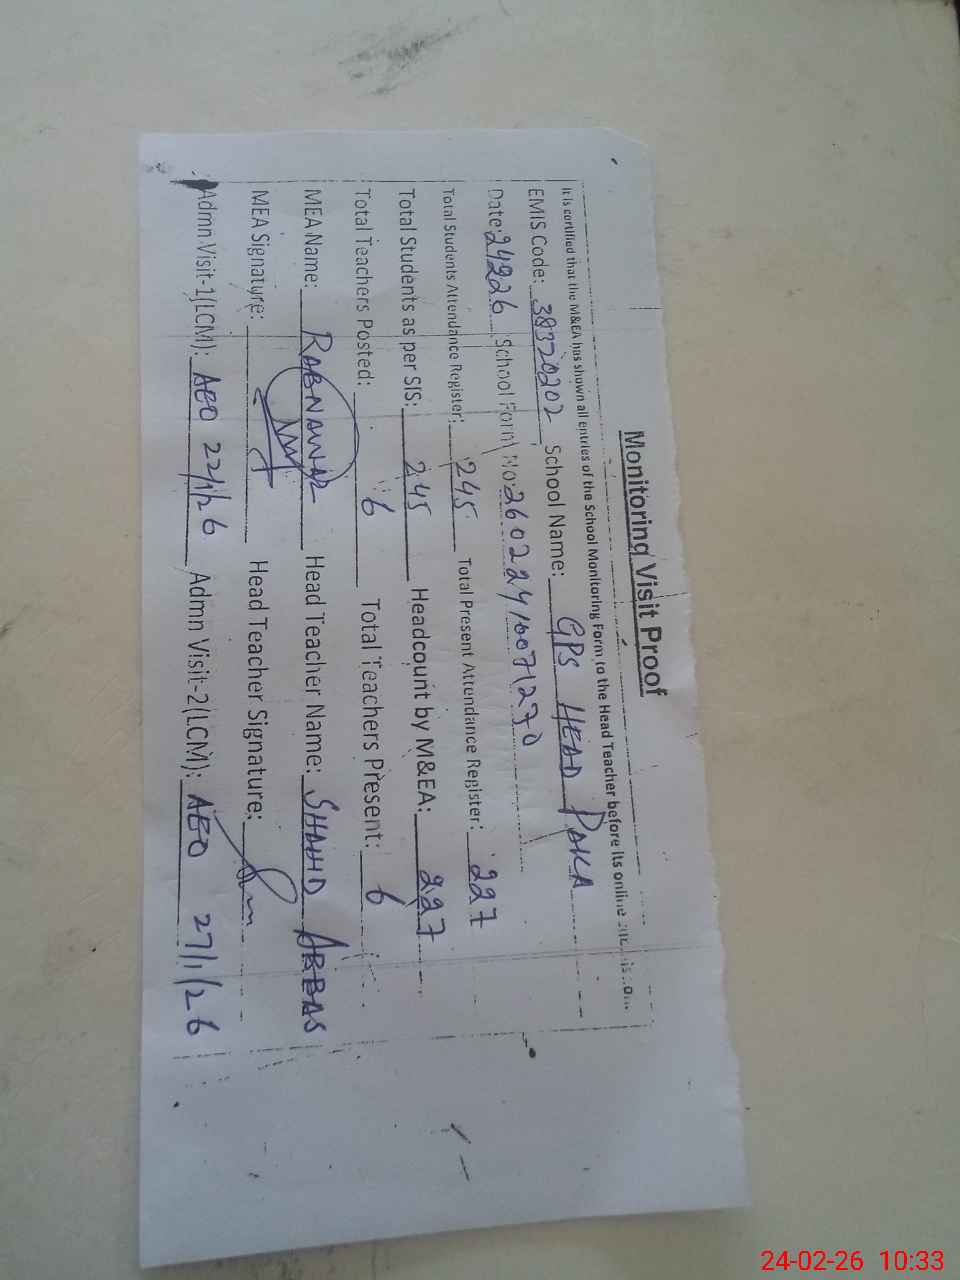 Monitoring Visit Proof
It is certified that the M&EA has shown all entries of the School Monitoring Form to the Head Teacher before its online
EMIS Code: 38320202 School Name: GPS HEAD PAKA
Date: 24226 School Form No: 26022410071270
Total Students Attendance Register: 245 Total Present Attendance Register: 227
Total Students as per SIS: 245 Headcount by M&EA: 227
Total Teachers Posted: 6 Total Teachers Present: 6
MEA Name: RABNAWAZ Head Teacher Name: SHAHID ABBAS
MEA Signature: Head Teacher Signature:
Admn Visit-1(LCM): AEO 22/1/26 Admn Visit-2(LCM): AEO 27/1/26
24-02-26 10:33